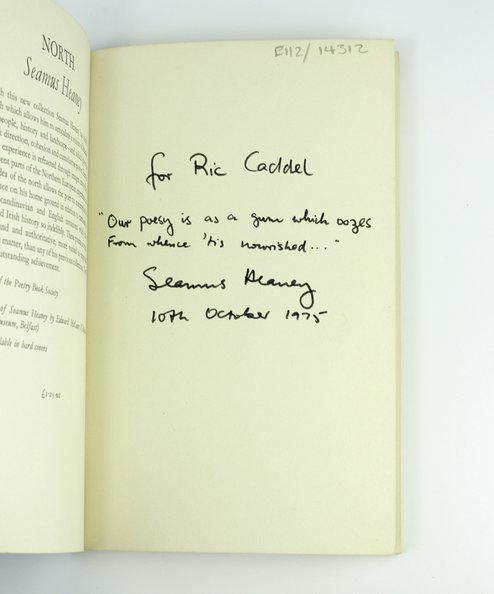 NORTH
Seamus Heaney
this new collection Seamus Heaney
which allows him to articulate
people, history and landscape
direction, cohesion and
experience is refracted through
parts of the Northern
idea of the north allows the poet
on his home ground in relation
Scandinavian and English
Irish history so indelibly. These
and authoritative, more
matter, than any of his previous
outstanding achievement.
of the Poetry Book Society
of Seamus Heaney by Edward
Museum, Belfast)
in hard covers
£1.25 net
E112/14312
for Ric Caddel
"Our poesy is as a gum which oozes
From whence 'tis nourished..."
Seamus Heaney
10th October 1975